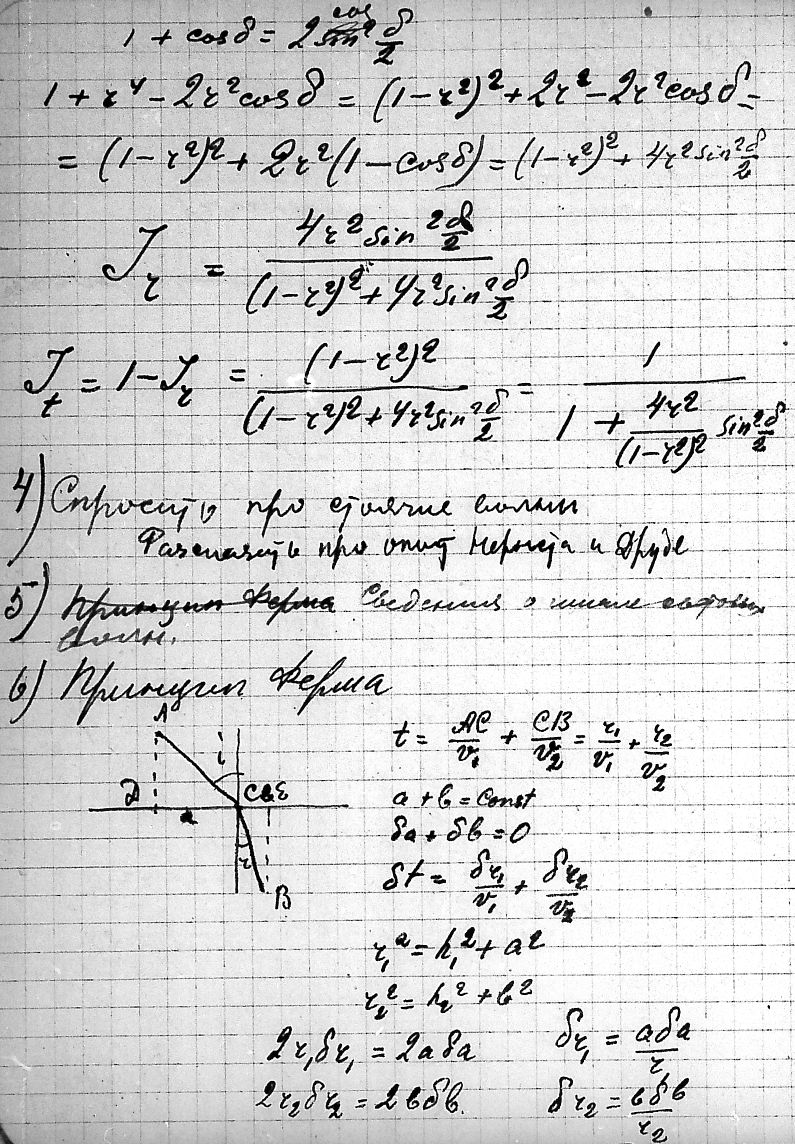 1 + cosδ = 2cos² δ/2
1 + r⁴ − 2r²cosδ = (1−r²)² + 2r² − 2r²cosδ =
= (1−r²)² + 2r²(1−cosδ) = (1−r²)² + 4r²sin² δ/2
J_r = 4r² sin² δ/2 / ((1−r²)² + 4r²sin² δ/2)
J_t = 1 − J_r = (1−r²)² / ((1−r²)² + 4r²sin² δ/2) = 1 / (1 + 4r²/(1−r²)² sin² δ/2)
4) Спросить про стоячие волны
Рассказать про опыт Нернста и Друде
5) Принцип Ферма Сведения о шкале
волн.
6) Принцип Ферма
A
i
D
a
C в E
r
B
t = AC/v₁ + CB/v₂ = r₁/v₁ + r₂/v₂
a + b = const
δa + δb = 0
δt = δr₁/v₁ + δr₂/v₂
r₁² = h₁² + a²
r₂² = h₂² + b²
2r₁δr₁ = 2aδa δr₁ = aδa/r₁
2r₂δr₂ = 2bδb. δr₂ = bδb/r₂